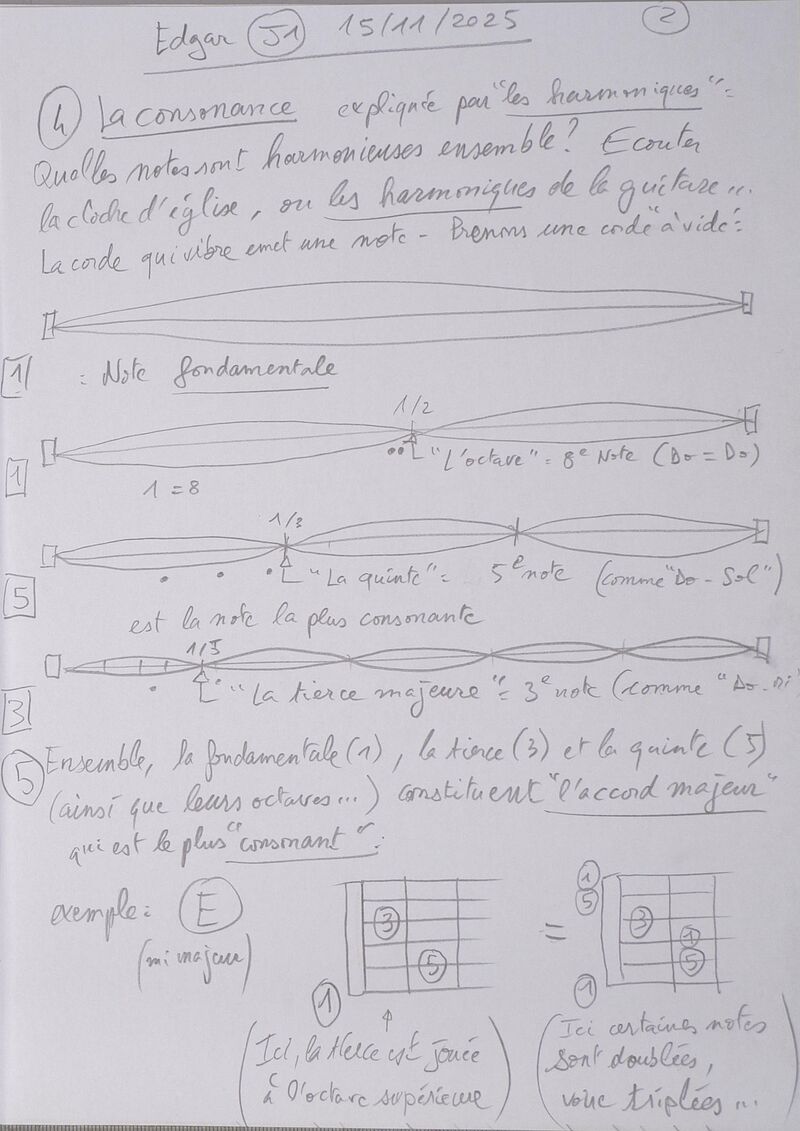 Edgar J1 15/11/2025 2
4 La consonance expliquée par "les harmoniques" =
Quelles notes sont harmonieuses ensemble ? Ecouter
la cloche d'église, ou les harmoniques de la guitare...
La corde qui vibre emet une note - Prenons une corde "à vide" :
1 = Note fondamentale
1/2
1 "L'octave" = 8e Note (Do = Do)
1 = 8
1/3
5 "La quinte" = 5e note (comme "Do - Sol")
est la note la plus consonante
1/5
3 "La tierce majeure" = 3e note (comme "Do - Mi
5 Ensemble, la fondamentale (1), la tierce (3) et la quinte (5)
(ainsi que leurs octaves...) constituent "l'accord majeur"
qui est le plus "consonant" :
exemple : E
(mi majeur)
3
5
1
=
1
5
3
1
5
1
(Ici, la tierce est jouée
à l'octave supérieure)
(Ici certaines notes
sont doublées,
voire triplées...)